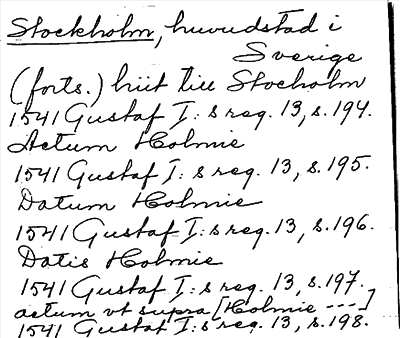 Stockholm, huvudstad i
Sverige
(forts.) hiit till Stocholm
1541 Gustaf I:s reg. 13, s. 194.
Actum Holmie
1541 Gustaf I:s reg. 13, s. 195.
Datum Holmie
1541 Gustaf I:s reg. 13, s. 196.
Datis Holmie
1541 Gustaf I:s reg. 13, s. 197.
actum vt supra [Holmie ---]
1541 Gustaf I:s reg. 13, s. 198.